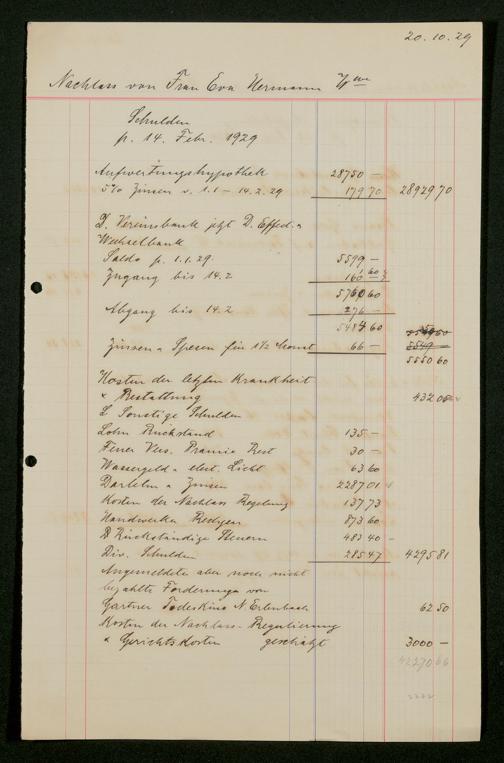 20.10.29
Nachlass von Frau Eva Hermann Wwe
Schulden
p. 14. Febr. 1929
Aufwertungshypothek 28750 —
5% Zinsen v. 1.1 — 14.2.29 179 70 28929 70
D. Vereinsbank jetzt D. Effect. u
Wechselbank
Saldo p. 1.1.29. 5599 —
Zugang bis 14.2 160 60
5760 60
Abgang bis 14.2 276 —
5484 60
Zinsen u Spesen für 1½ Monat 66 — 5549 —
5550 60
Kosten der letzten Krankheit
u Bestattung 432 06
Sonstige Schulden
Lohn Rückstand 135 —
Feuer Vers. Prämie Rest 30 —
Wassergeld u elect. Licht 63 60
Darlehn u Zinsen 2287 01
Kosten der Nachlass Regelung 137 73
Handwerker Rechgen 873 60
Rückständige Steuern 483 40 —
Div. Schulden 285 47 4295 81
Angemeldete aber noch nicht
bezahlte Forderungen von
Gärtner Todeskino N Erlenbach 62 50
Kosten der Nachlass-Regulierung
u Gerichtskosten geschätzt 3000 —
42270 66